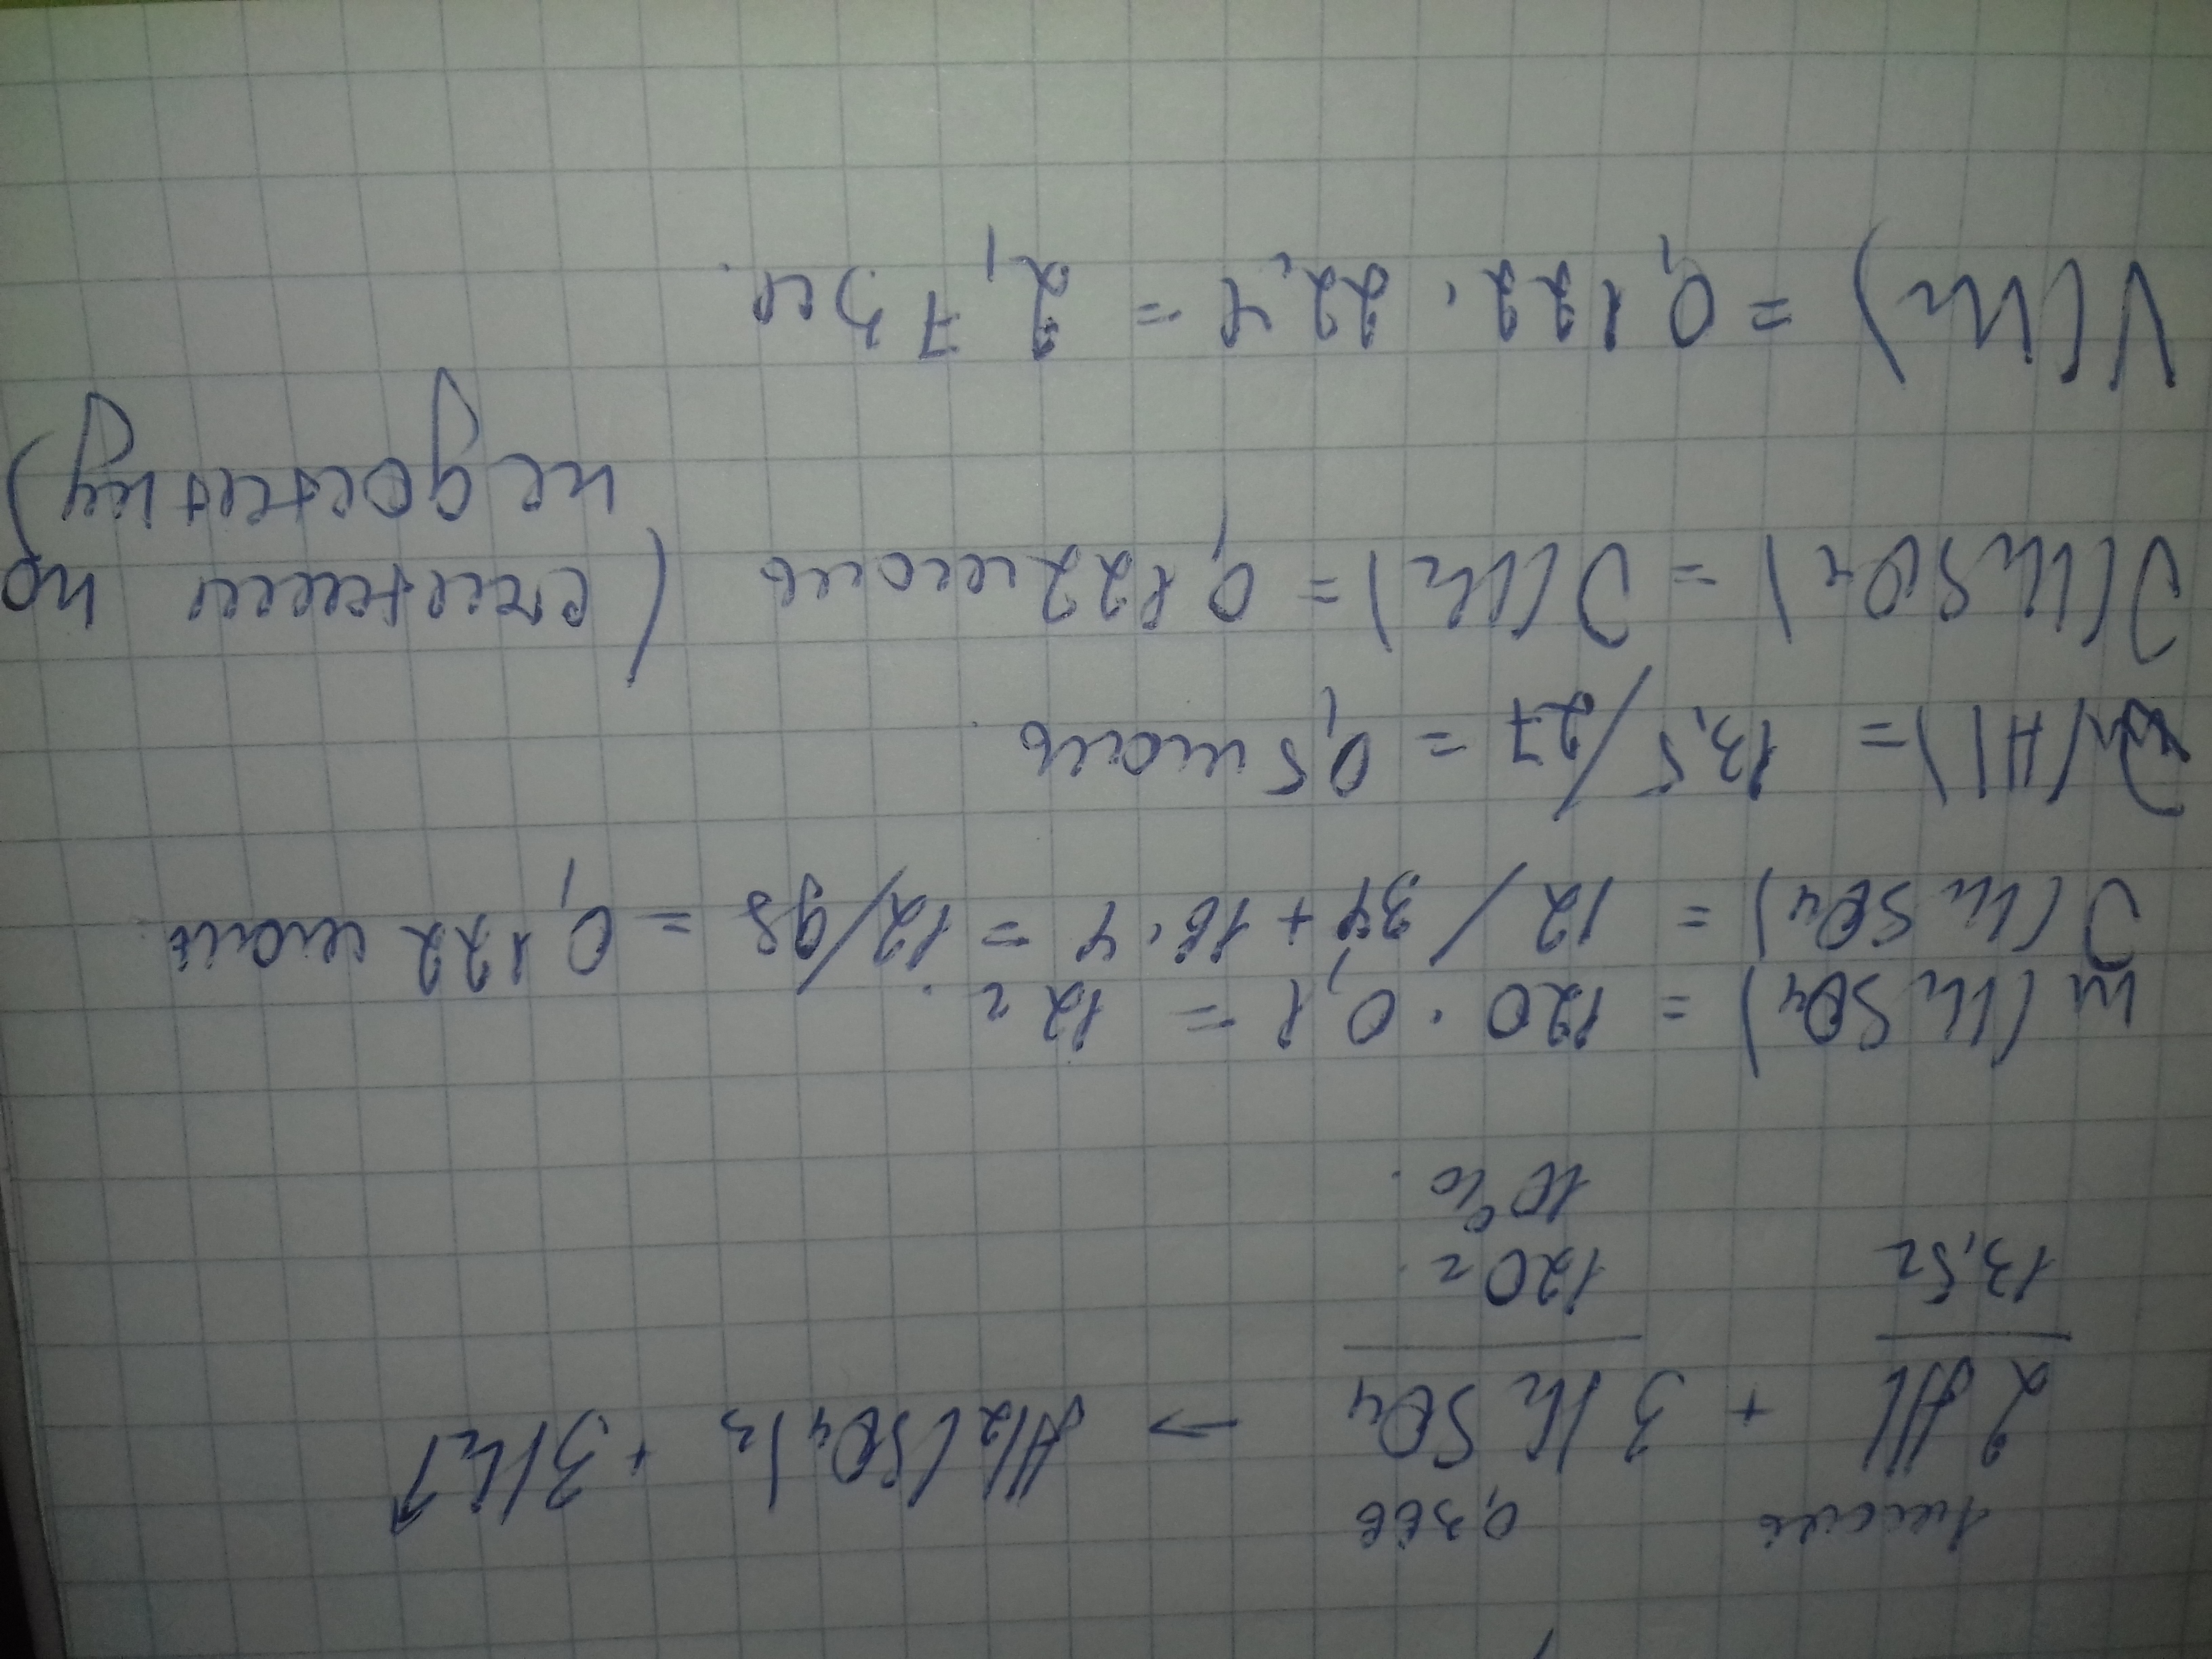 1 моль 0,366
2 Al + 3 H2SO4 → Al2(SO4)3 + 3H2↑
13,5г 120г
10%.
m(H2SO4) = 120 · 0,1 = 12г.
ν(H2SO4) = 12/34+16·4 = 12/98 = 0,122 моль.
ν(Al) = 13,5/27 = 0,5 моль.
ν(H2SO4) = ν(H2) = 0,122 моль (считаем по
недостатку)
V(H2) = 0,122 · 22,4 = 2,73л.